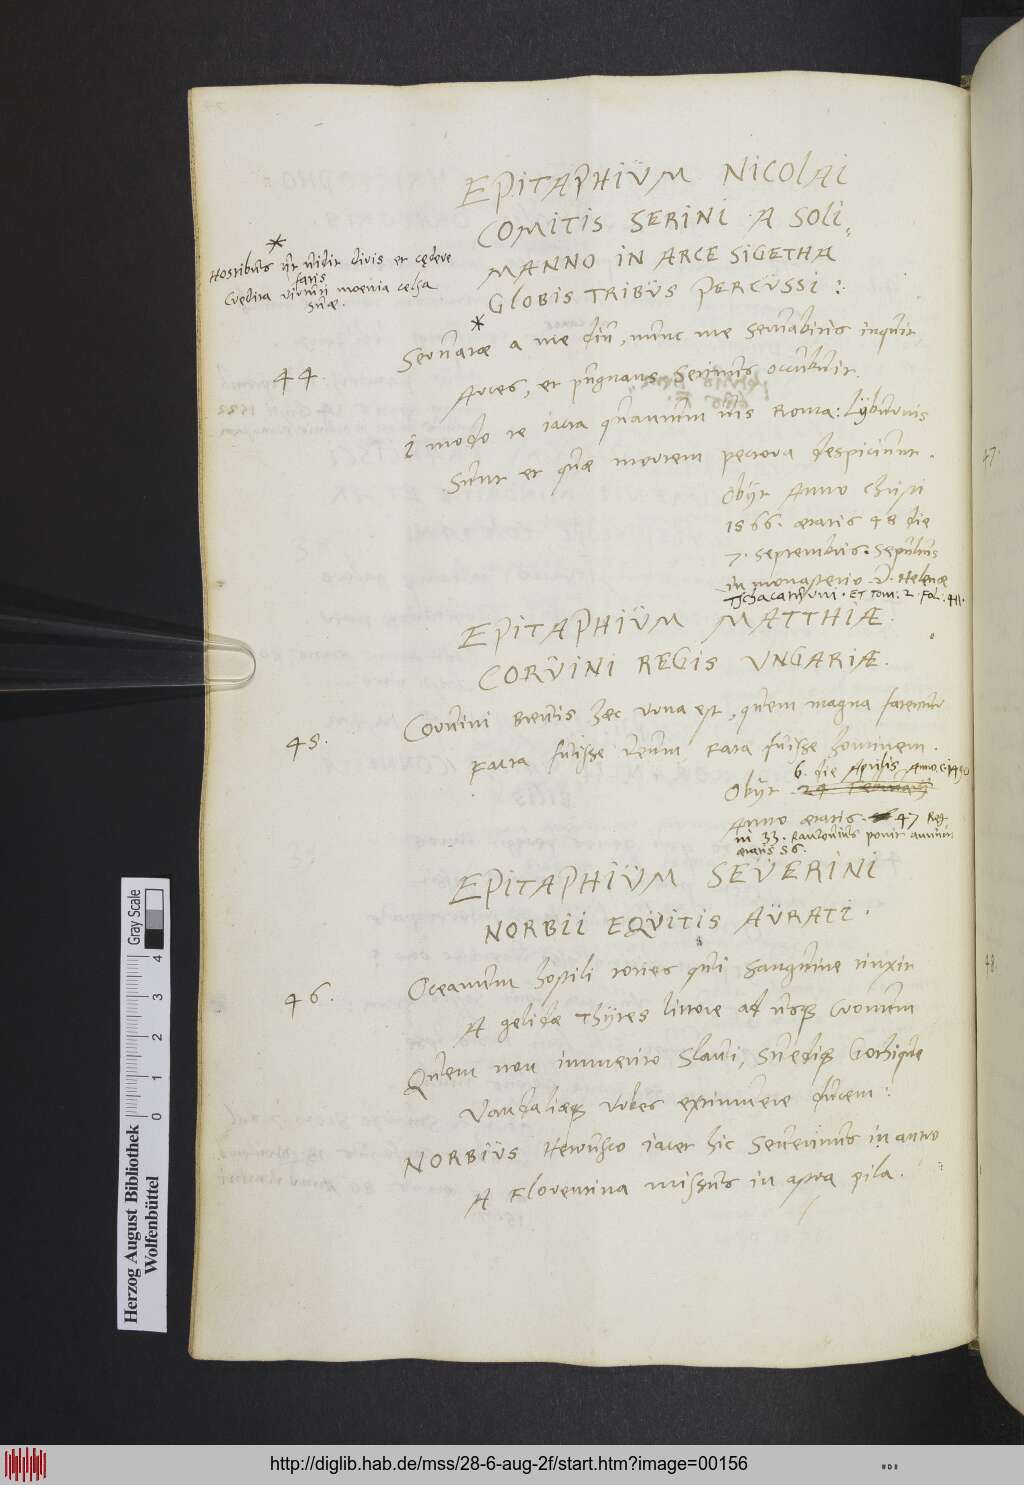 EPITAPHIÜM NICOLAI
COMITIS SERINI A SOLI=
MANNO IN ARCE SIGETHA
GLOBIS TRIBÜS PERCÜSSI:
*
Hostibus ut vidit divis et cędere fatis
Credita virtuti moenia celsa suæ.
*
44.
Servatæ a me diu, nunc me servabitis inquit
Arces, et pugnans Serinus occubuit.
I modo te iacta quantumvis Roma: Lÿburnis
Sunt et quæ mortem pectora despiciunt.
Obÿt Anno Christi
1566. ætatis 48 die
7. Septembris. Sepultus
in monasterio D. Helenæ
ET Tom: 2. Fol: 411.
EPITAPHIÜM MATTHIÆ
CORVINI REGIS UNGARIÆ.
45.
Corvini brevis hæc urna est, quem magna fatentur
facta fuisse Deum fata fuisse hominem.
Obÿt 6. die Aprilis Anno 1490
Anno ætatis 47 Reg
ni 33. ponit annum
ætatis 56.
EPITAPHIÜM SEVERINI
NORBII EQVITIS AÜRATI.
46.
Oceanum hostili toties qui sanguine tinxit
A gelidæ Thÿles littore ad usque
Quem non immerito Slavi, Suedique Gothique
Vandaliæque urbes extimuere ducem:
NORBIÜS Hetrusco iacet hic Severinus in antro
A Florentina missus in astra pila.
47.
48.
Gray Scale
0 1 2 3 4
Herzog August Bibliothek
Wolfenbüttel
http://diglib.hab.de/mss/28-6-aug-2f/start.htm?image=00156